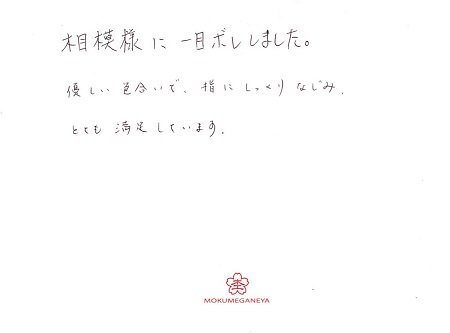 木目模様に一目ボレしました。
優しい色合いで、指にしっくりなじみ、
とても満足しています。
MOKUMEGANEYA